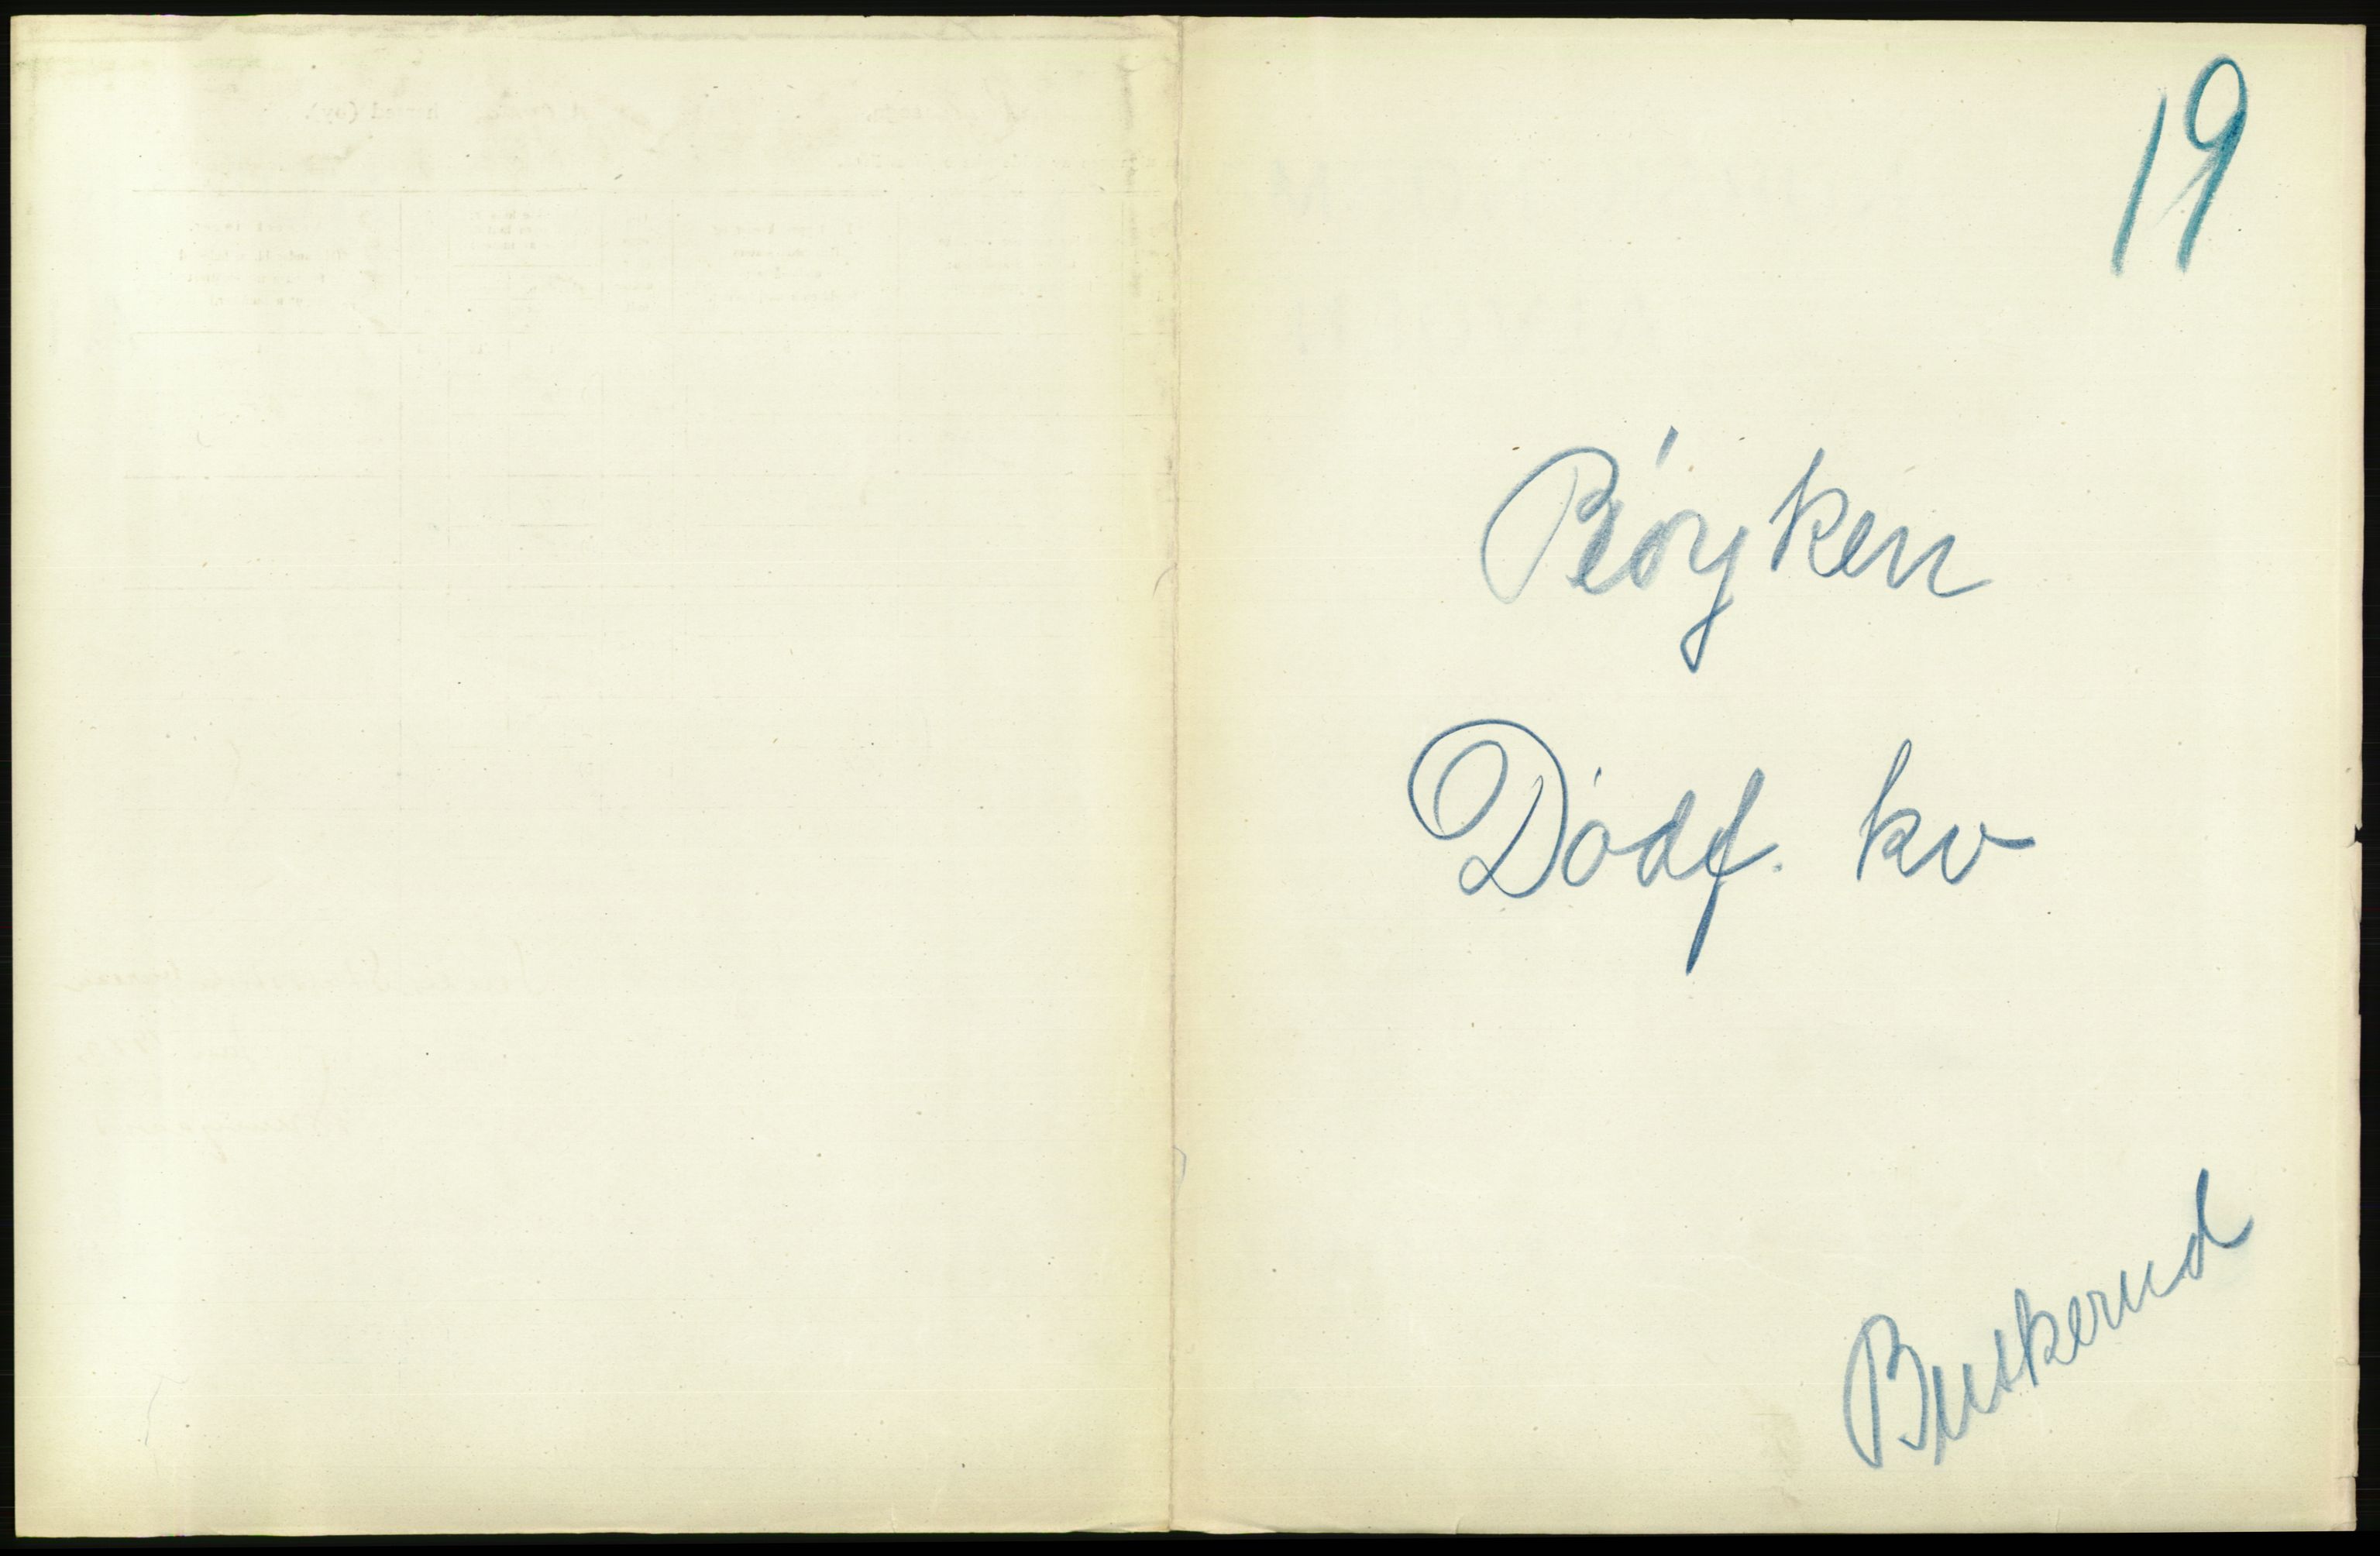 19
Røyken
Dødf. kv
Buskerud